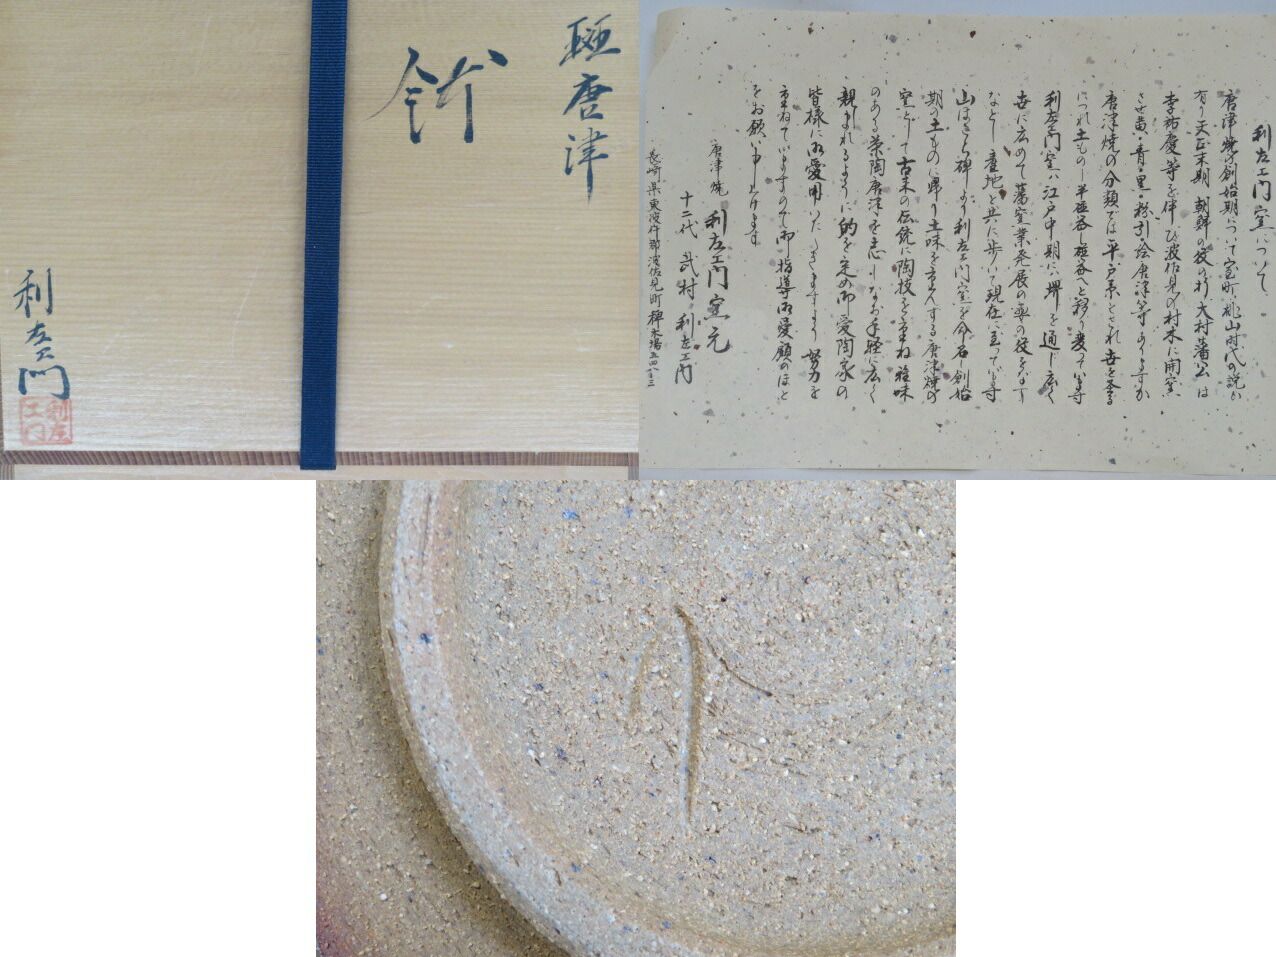 斑唐津
鉢
利左エ門
利左
エ門
利左エ門窯について
唐津焼の創始期について室町、桃山時代の説が
有り天正末期、朝鮮の役の折、大村藩公は
李祐慶等を伴ひ波佐見の村木に開窯
させ黄・青・黒・粉引・絵唐津等ありますが
唐津焼の分類では平戸系とされ世を基る
につれ土もの半磁器し磁器へと移り変っています
利左エ門窯は江戸中期に堺を通じ広く
世に広めて藩窯業発展の一翼の役をなす
などし産地と共に歩いて現在に至っています
期の土ものに帰り土味を重んする唐津焼の
窯として古来の伝統に陶技を重ね雅味
のある茶陶唐津を志しなお手軽に広く
親しまれるように的を定め御愛陶家の
皆様に御愛用いただきますよう努力を
重ねていますので御指導御愛顧のほど
をお願い申し上げます
唐津焼 利左エ門窯元
十二代 武村利左エ門
長崎県東彼杵郡波佐見町稗木場